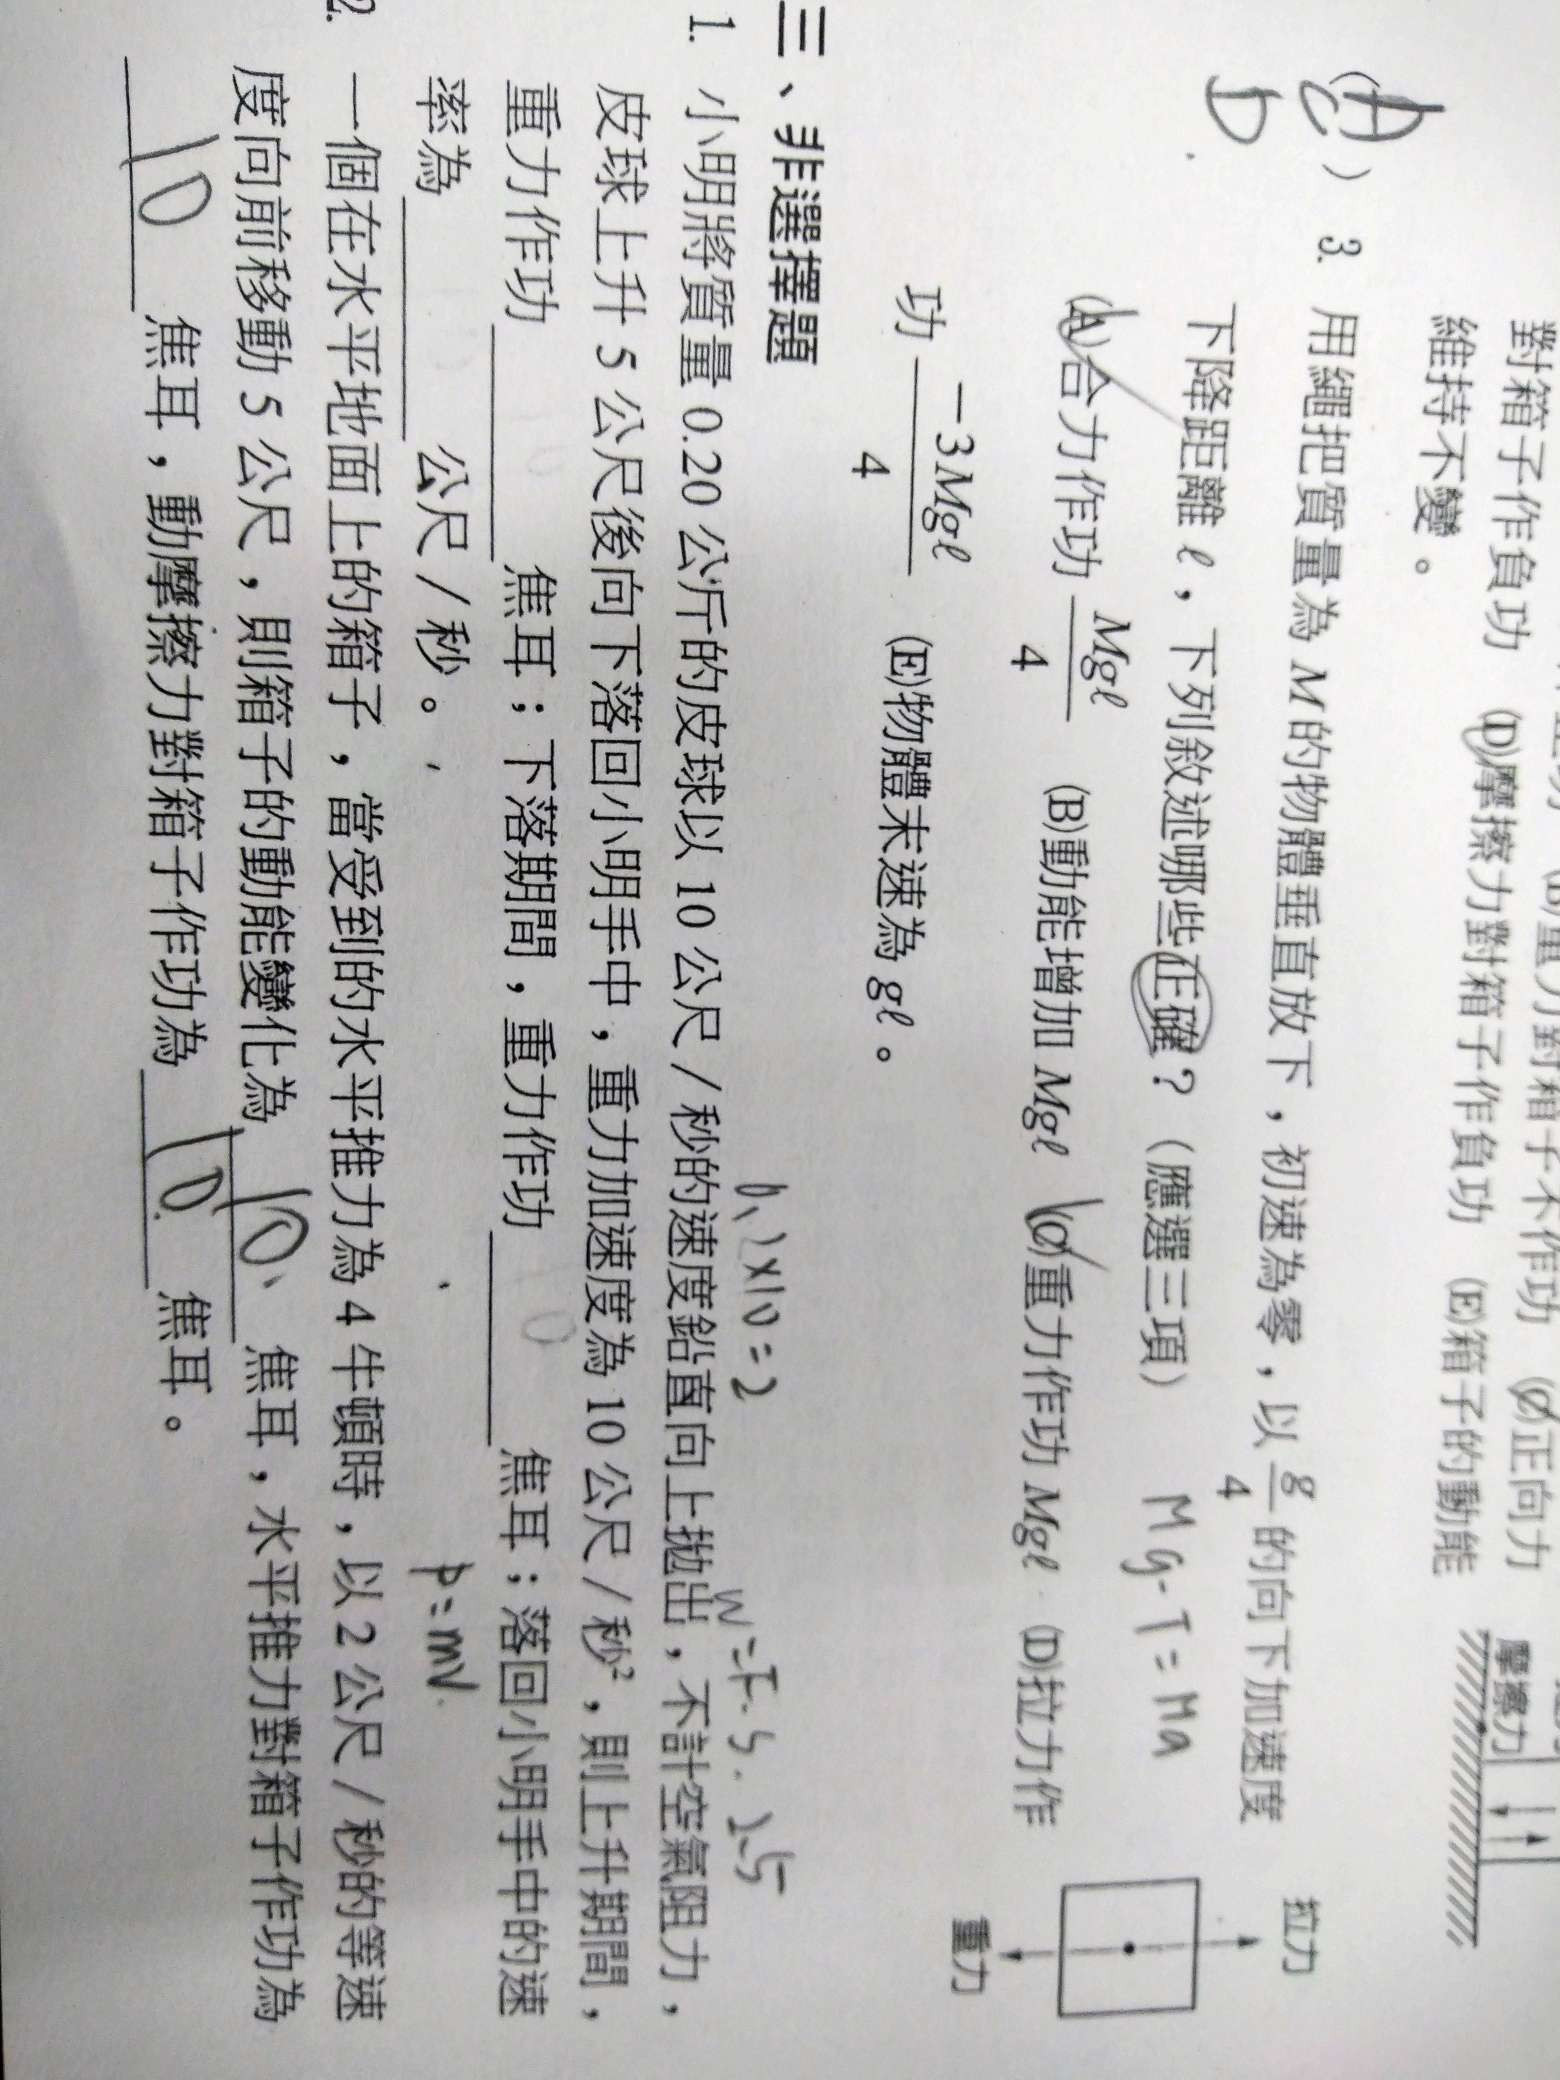 對箱子作負功 (D)摩擦力對箱子作負功 (E)箱子的動能
維持不變。
摩擦力
(A) 3. 用繩把質量為 M 的物體垂直放下，初速為零，以 g/4 的向下加速度
C
D
下降距離 ℓ，下列敘述哪些正確？（應選三項）
Mg-T=Ma
(A)合力作功 Mgℓ/4 (B)動能增加 Mgℓ (C)重力作功 Mgℓ (D)拉力作
功 -3Mgℓ/4 (E)物體末速為 gℓ。
拉力
重力
三、非選擇題
0.2×10=2
W=F·S
1. 小明將質量 0.20 公斤的皮球以 10 公尺／秒的速度鉛直向上拋出，不計空氣阻力，
皮球上升 5 公尺後向下落回小明手中，重力加速度為 10 公尺／秒²，則上升期間，
重力作功 ＿＿＿ 焦耳；下落期間，重力作功 ＿＿＿ 焦耳；落回小明手中的速
率為 ＿＿＿ 公尺／秒。
P=mV
2. 一個在水平地面上的箱子，當受到的水平推力為 4 牛頓時，以 2 公尺／秒的等速
度向前移動 5 公尺，則箱子的動能變化為 10 焦耳，水平推力對箱子作功為
10 焦耳，動摩擦力對箱子作功為 10 焦耳。